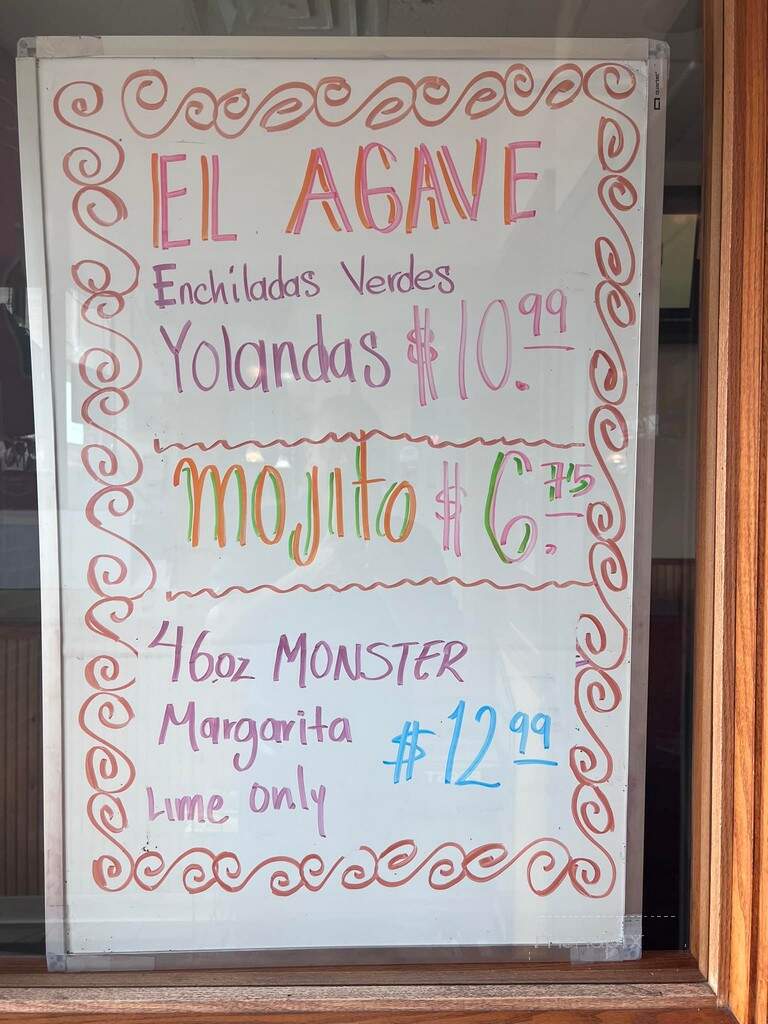 EL AGAVE
Enchiladas Verdes
Yolandas $10.99
mojito $6.75
46oz MONSTER
Margarita $12.99
Lime only